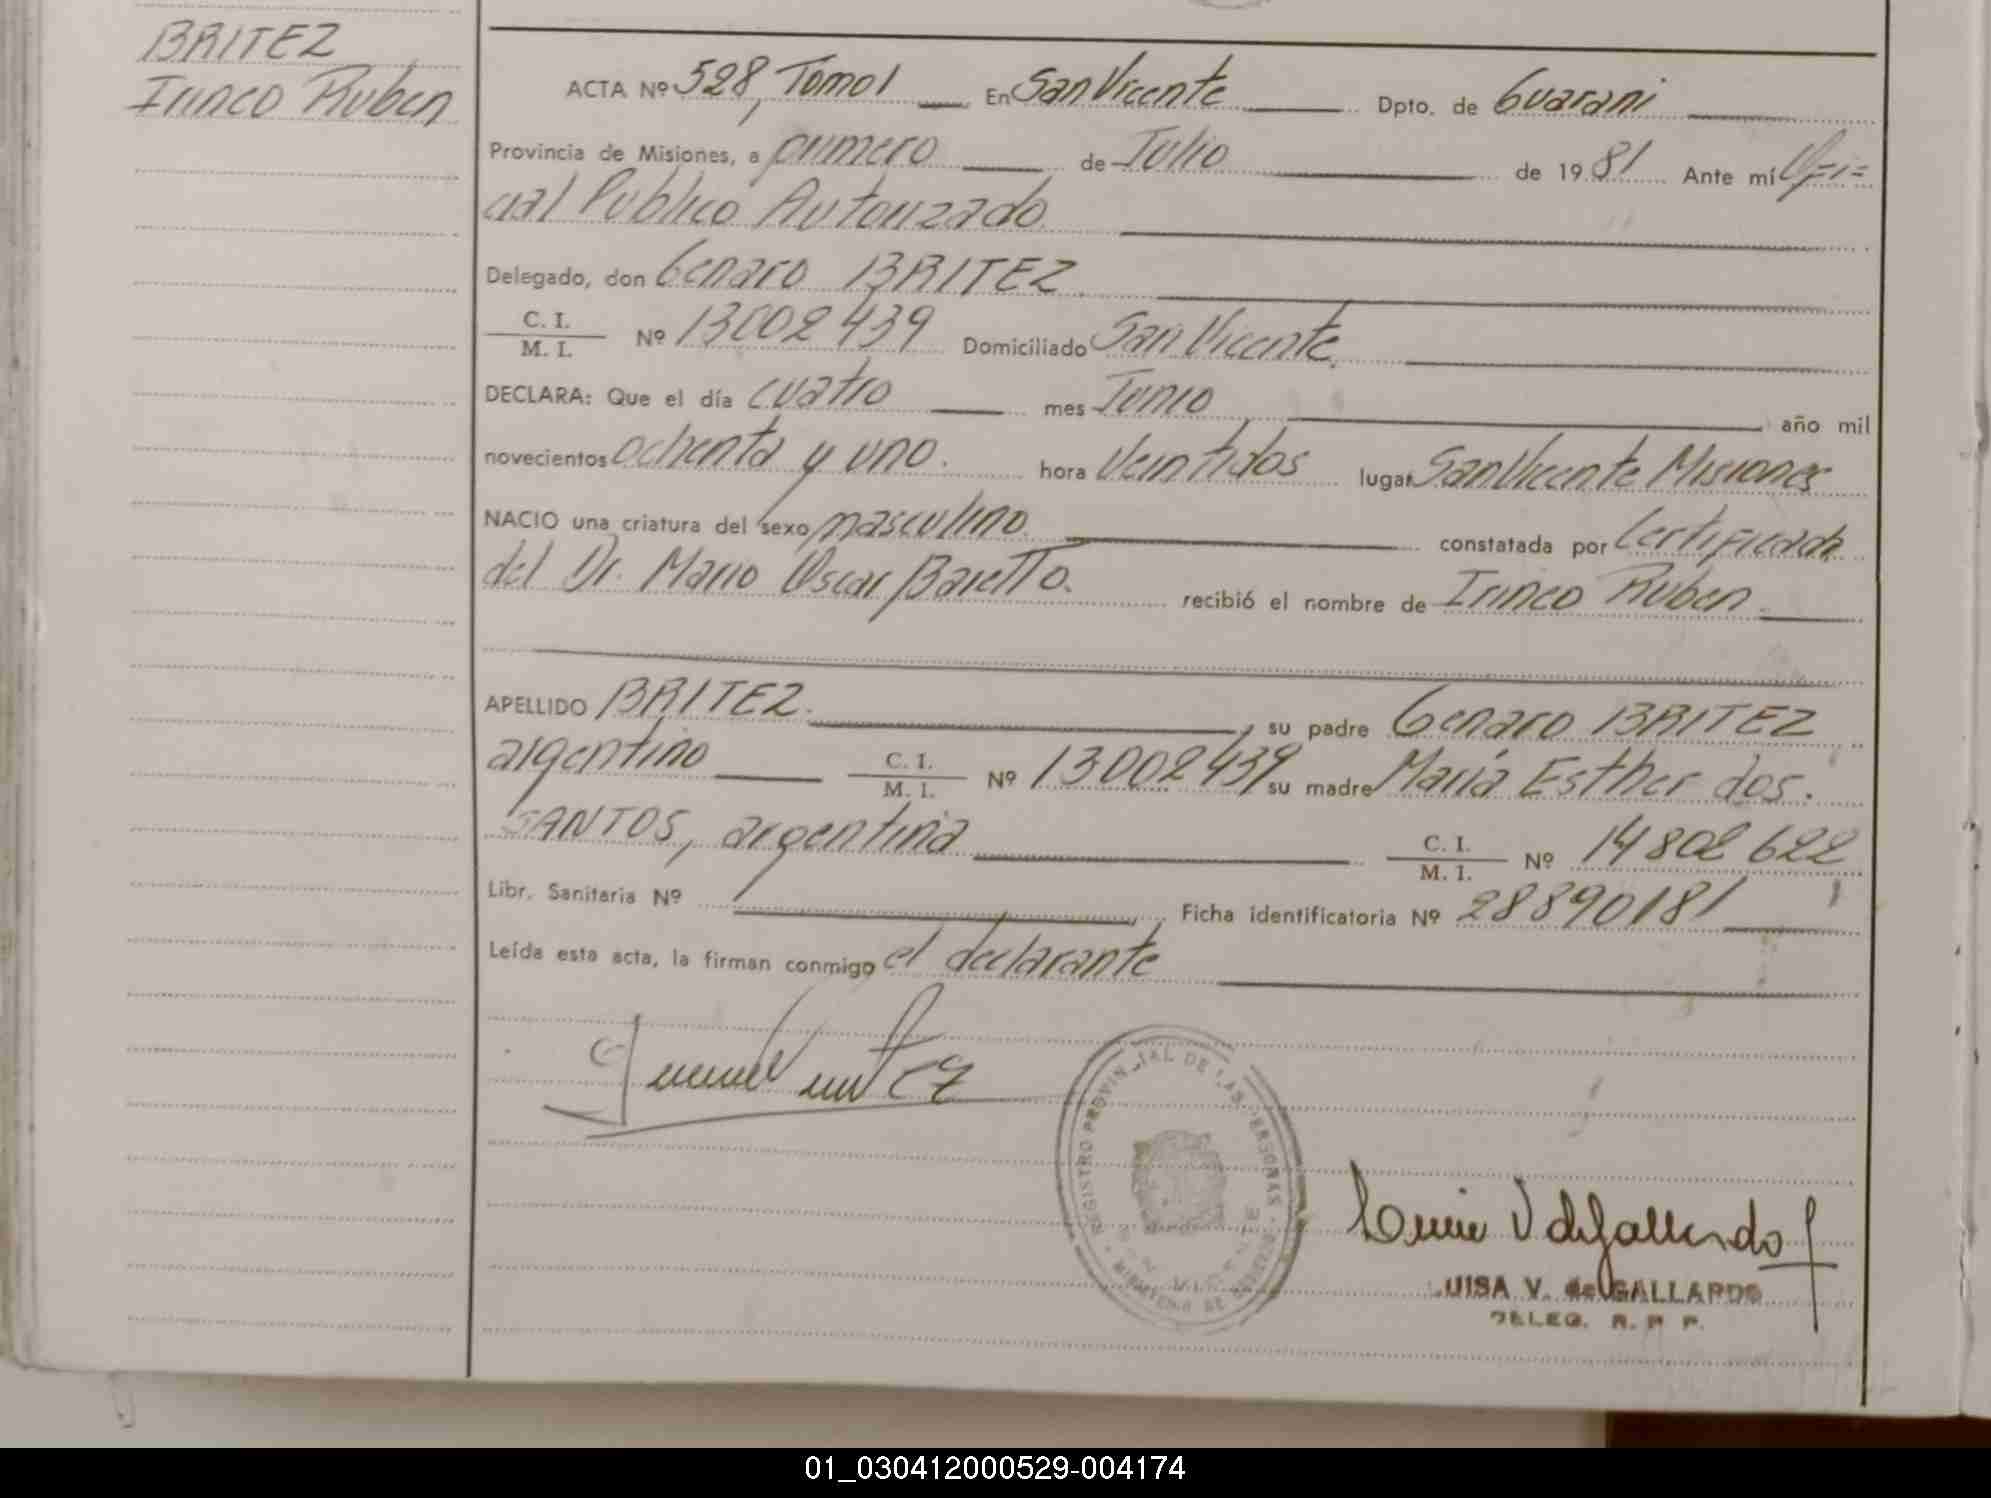 BRITEZ
Irineo Ruben
ACTA Nº 528, Tomo I En San Vicente Dpto. de Guarani
Provincia de Misiones, a primero de Julio de 1981 Ante mí Ofi=
cial Publico Autorizado.
Delegado, don Genaro BRITEZ
C. I.
M. I. Nº 13002439 Domiciliado San Vicente.
DECLARA: Que el día cuatro mes Junio año mil
novecientos ochenta y uno. hora Veintidos lugar San Vicente Misiones
NACIO una criatura del sexo masculino. constatada por Certificado
del Dr. Mario Oscar Baretto. recibió el nombre de Irineo Ruben
APELLIDO BRITEZ. su padre Genaro BRITEZ
argentino C. I. M. I. Nº 13002439 su madre María Esther dos.
SANTOS, argentina C. I. M. I. Nº 14802622
Libr. Sanitaria Nº Ficha identificatoria Nº 28890181
Leída esta acta, la firman conmigo el declarante
REGISTRO PROVINCIAL DE LAS PERSONAS
SAN VICENTE
MINISTERIO DE GOBIERNO
LUISA V. de GALLARDO
DELEG. R. P. P.
01_030412000529-004174